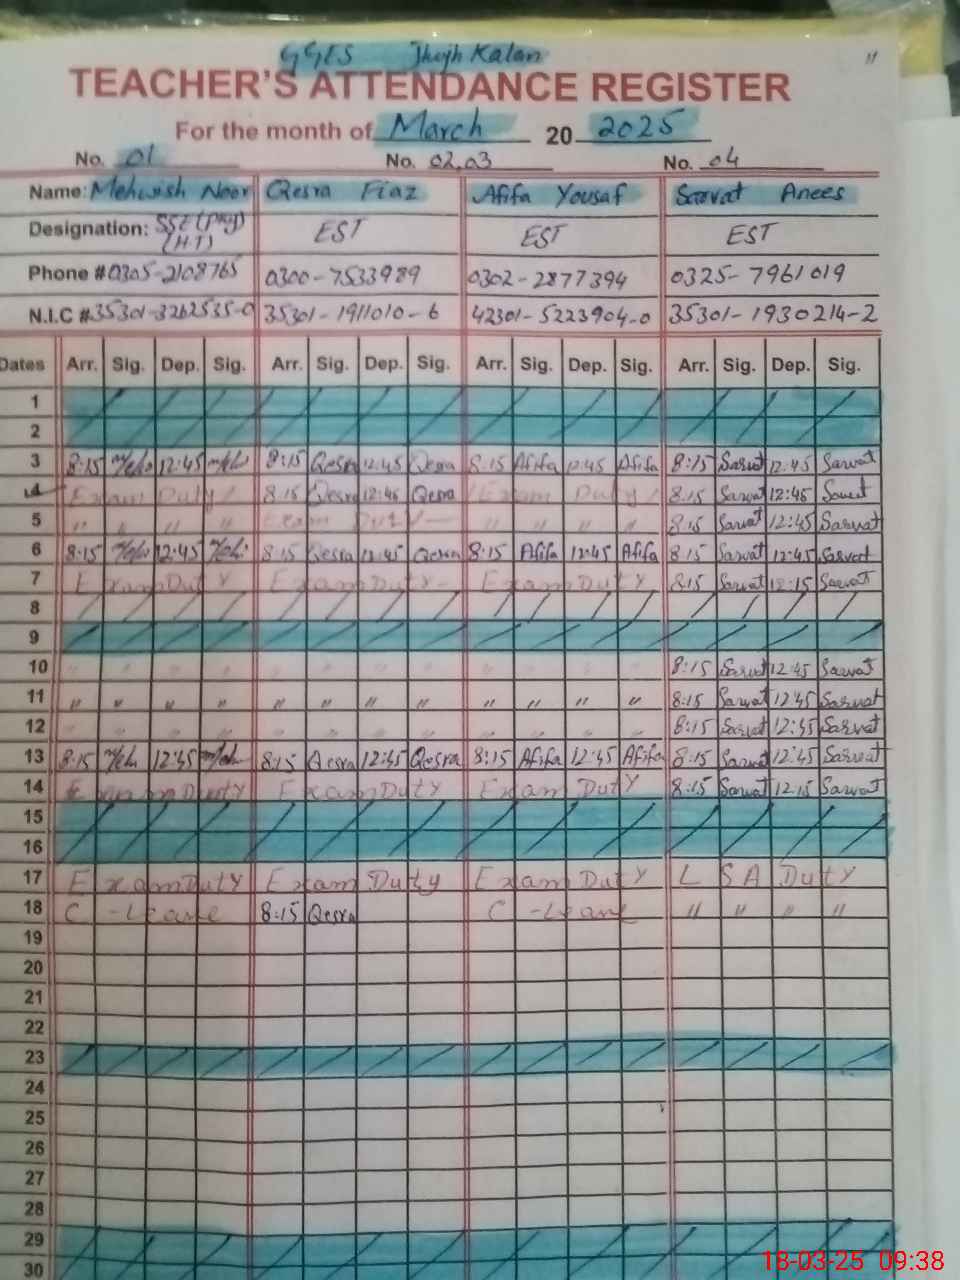 GGES Jhojh Kalan
11
TEACHER'S ATTENDANCE REGISTER
For the month of March 20 2025
No. 01 No. 02,03 No. 04
Name: Mehwish Noor Qesra Fiaz Afifa Yousaf Sarvat Anees
Designation: SSE (Phy) (H.T) EST EST EST
Phone # 0305-2108765 0300-7533989 0302-2877394 0325-7961019
N.I.C # 35301-3262535-0 35301-1911010-6 42301-5223904-0 35301-1930214-2
Dates Arr. Sig. Dep. Sig. Arr. Sig. Dep. Sig. Arr. Sig. Dep. Sig. Arr. Sig. Dep. Sig.
1
2
3 8:15 12:45 8:15 Qesra 12:45 Qesra 8:15 Afifa 12:45 Afifa 8:15 Sarvat 12:45 Sarvat
4 Exam Duty 8:15 Qesra 12:45 Qesra Exam Duty 8:15 Sarvat 12:45 Sarvat
5 " " " " Exam Duty " " " " 8:15 Sarvat 12:45 Sarvat
6 8:15 12:45 8:15 Qesra 12:45 Qesra 8:15 Afifa 12:45 Afifa 8:15 Sarvat 12:45 Sarvat
7 Exam Duty Exam Duty Exam Duty 8:15 Sarvat 12:15 Sarvat
8
9
10 " " " " " " " " " " " " 8:15 Sarvat 12:45 Sarvat
11 " " " " " " " " " " " " 8:15 Sarvat 12:45 Sarvat
12 " " " " " " " " " " " " 8:15 Sarvat 12:45 Sarvat
13 8:15 12:45 8:15 Qesra 12:45 Qesra 8:15 Afifa 12:45 Afifa 8:15 Sarvat 12:45 Sarvat
14 Exam Duty Exam Duty Exam Duty 8:15 Sarvat 12:15 Sarvat
15
16
17 Exam Duty Exam Duty Exam Duty LSA Duty
18 C-Leave 8:15 Qesra C-Leave " " " "
19
20
21
22
23
24
25
26
27
28
29
30
18-03-25 09:38